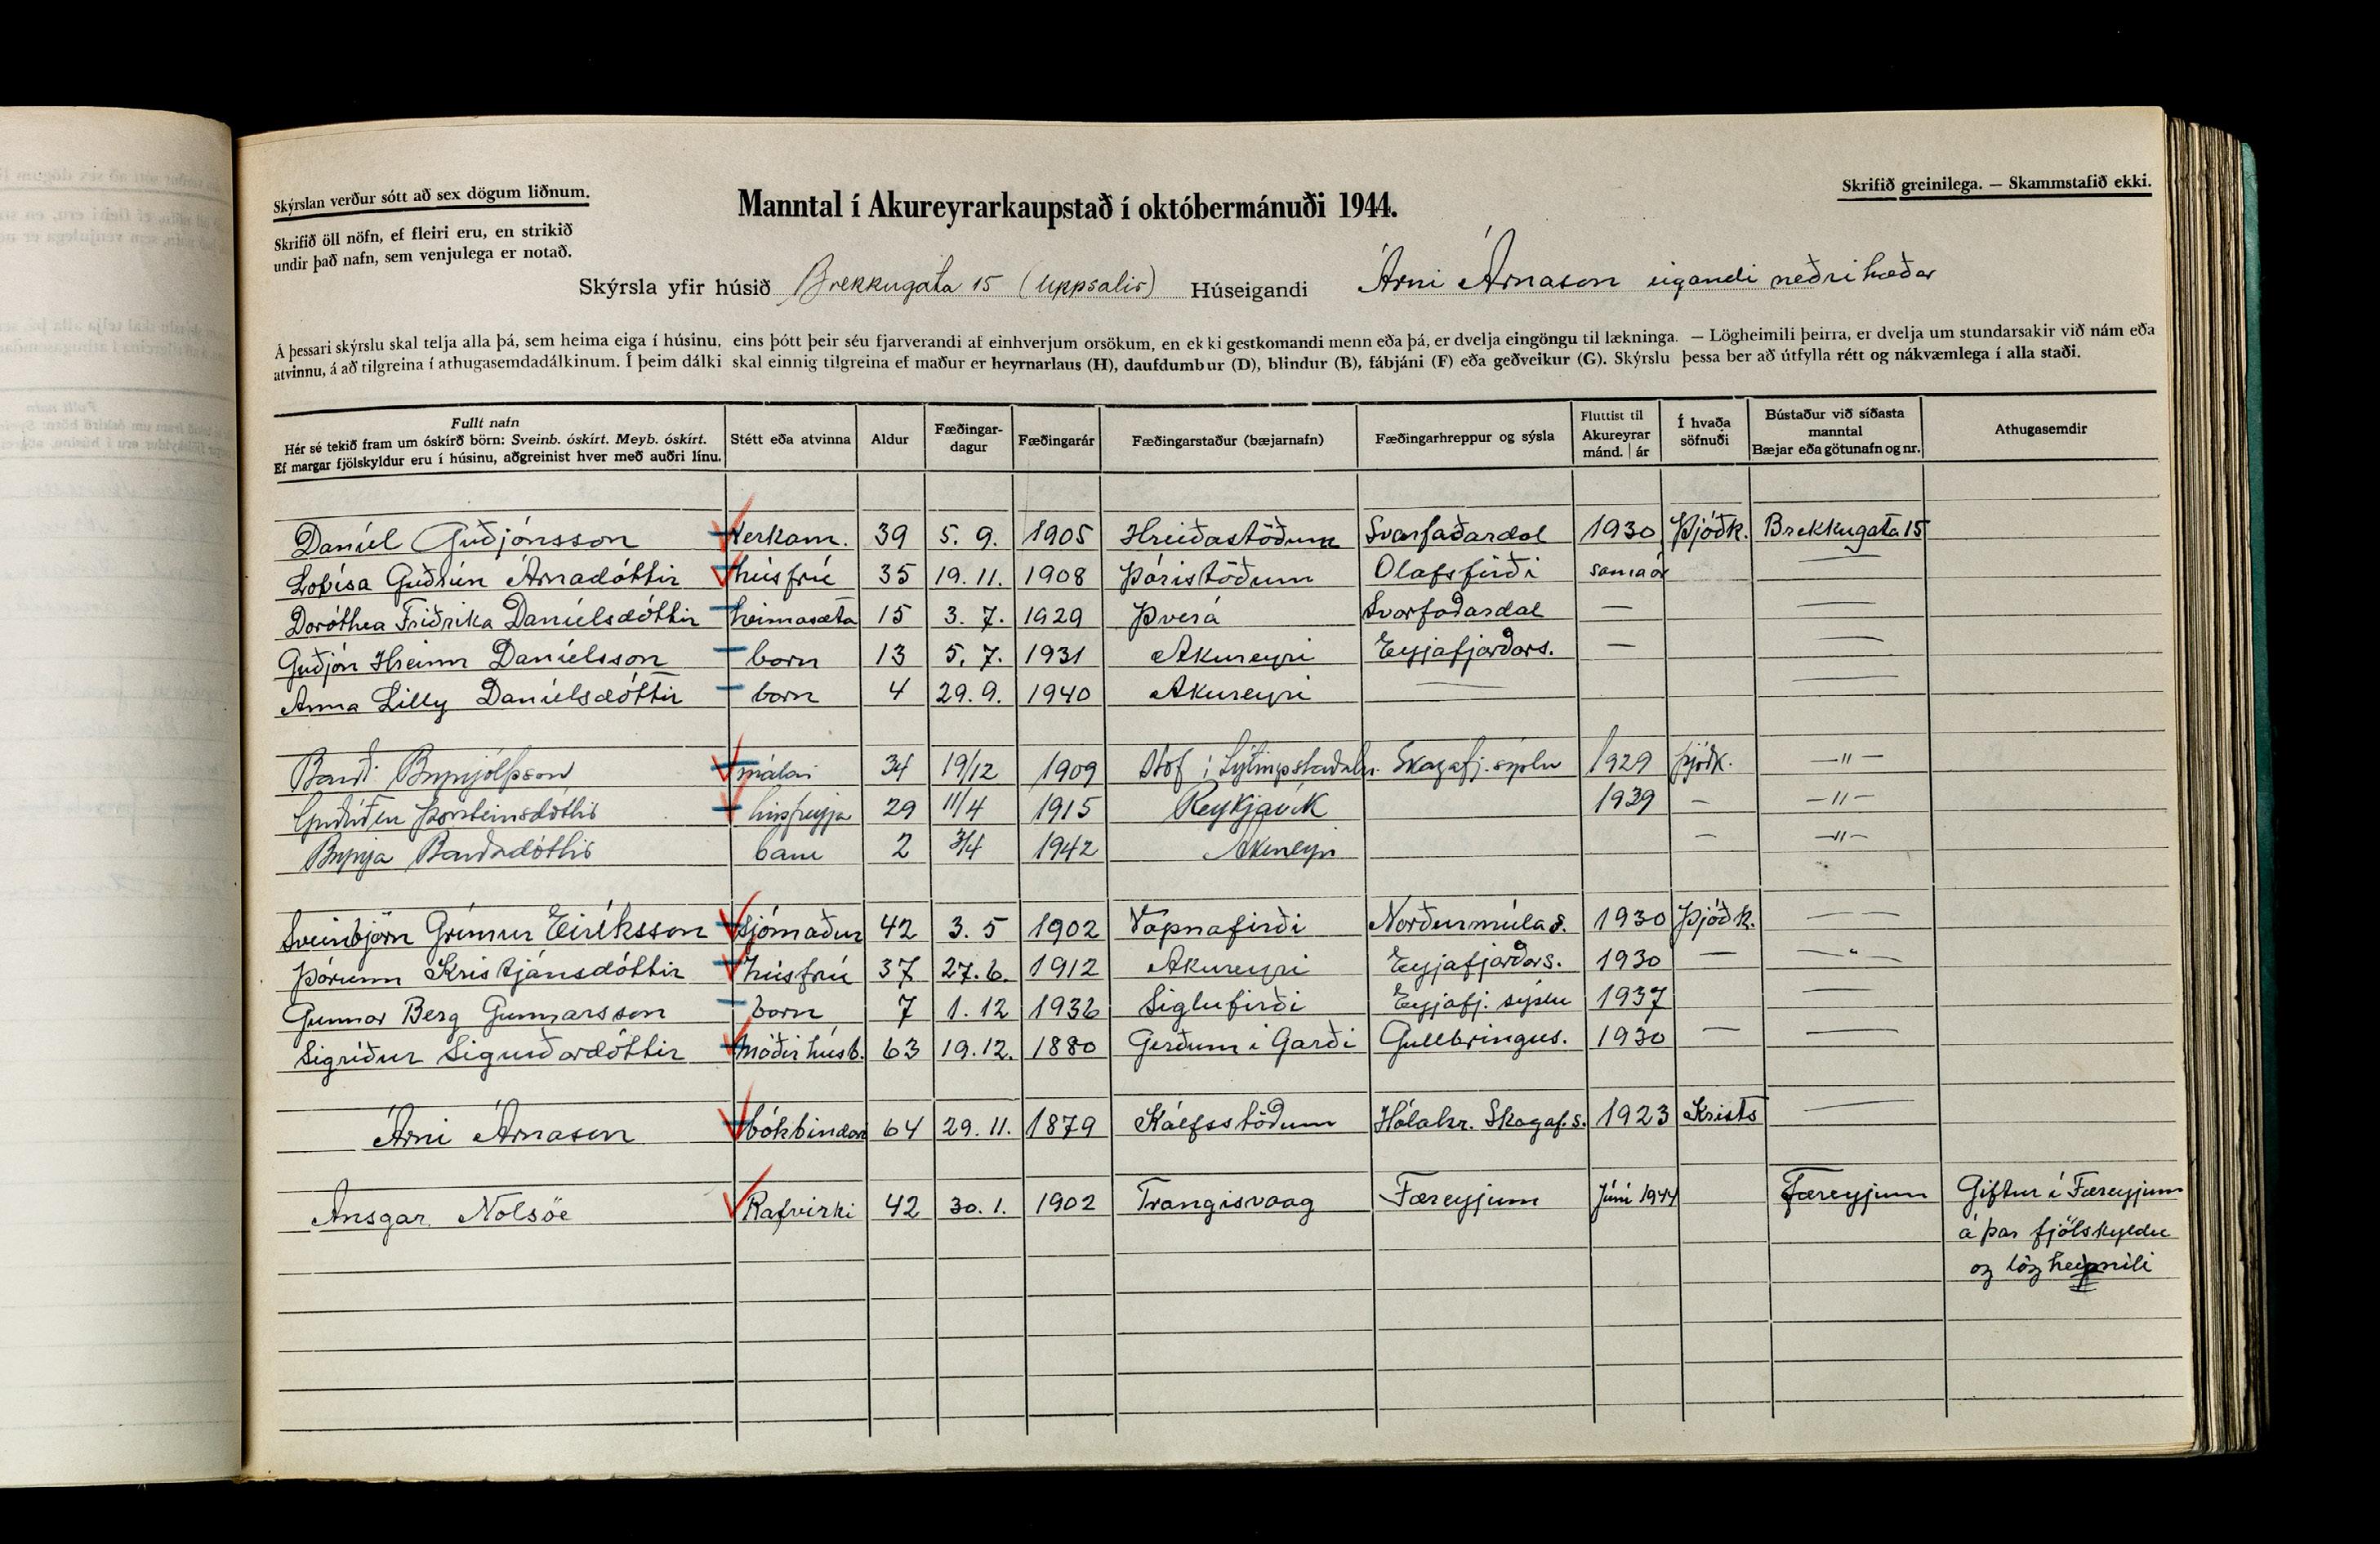 Skýrslan verður sótt að sex dögum liðnum.
Skrifið öll nöfn, ef fleiri eru, en strikið
undir það nafn, sem venjulega er notað.
Manntal í Akureyrarkaupstað í októbermánuði 1944.
Skrifið greinilega. — Skammstafið ekki.
Skýrsla yfir húsið Brekkugata 15 (Uppsalir) Húseigandi Árni Árnason eigandi neðri hæðar
Á þessari skýrslu skal telja alla þá, sem heima eiga í húsinu, eins þótt þeir séu fjarverandi af einhverjum orsökum, en ekki gestkomandi menn eða þá, er dvelja eingöngu til lækninga. — Lögheimili þeirra, er dvelja um stundarsakir við nám eða
atvinnu, á að tilgreina í athugasemdadálkinum. Í þeim dálki skal einnig tilgreina ef maður er heyrnarlaus (H), daufdumbur (D), blindur (B), fábjáni (F) eða geðveikur (G). Skýrslu þessa ber að útfylla rétt og nákvæmlega í alla staði.
Fullt nafn
Hér sé tekið fram um óskírð börn: Sveinb. óskírt. Meyb. óskírt.
Ef margar fjölskyldur eru í húsinu, aðgreinist hver með auðri línu.
Stétt eða atvinna
Aldur
Fæðingar-
dagur
Fæðingarár
Fæðingarstaður (bæjarnafn)
Fæðingarhreppur og sýsla
Fluttist til
Akureyrar
mánd. | ár
Í hvaða
söfnuði
Bústaður við síðasta
manntal
Bæjar eða götunafn og nr.
Athugasemdir
Daníel Guðjónsson Verkam. 39 5. 9. 1905 Hreiðastöðum Svarfaðardal 1930 Þjóðk. Brekkugata 15
Lovísa Guðrún Árnadóttir húsfrú 35 19. 11. 1908 Þóristöðum Olafsfirði sama ár —
Doróthea Friðrika Daníelsdóttir heimasæta 15 3. 7. 1929 Þverá Svarfaðardal — —
Guðjón Hreinn Daníelsson born 13 5. 7. 1931 Akureyri Eyjafjarðars. — —
Anna Lilly Daníelsdóttir born 4 29. 9. 1940 Akureyri — —
Barði Brynjólfsson málari 34 19/12 1909 Hof í Lýtingsstaðahr. Skagafj. sýslu 1929 þjóðk. —"—
Þorsteinsdóttir húsfreyja 29 11/4 1915 Reykjavík 1939 — —"—
Brynja Barðadóttir barn 2 3/4 1942 Akureyri — —"—
Sveinbjörn Grímur Eiríksson Sjómaður 42 3. 5 1902 Vopnafirði Norðurmúlas. 1930 Þjóðk. — —
Þórunn Kristjánsdóttir húsfrú 37 27. 6. 1912 Akureyri Eyjafjarðars. 1930 — —"—
Gunnar Berg Gunnarsson born 7 1. 12 1936 Siglufirði Eyjafj. sýslu 1937 —
Sigríður Sigurðardóttir móðir húsb. 63 19. 12. 1880 Gerðum í Garði Gullbringus. 1930 — —
Árni Árnason bókbindari 64 29. 11. 1879 Kálfsstöðum Hólahr. Skagaf.s. 1923 Krists —
Ansgar Nolsöe Rafvirki 42 30. 1. 1902 Trangisvaag Færeyjum Júní 1944 Færeyjum Giftur í Færeyjum
á þar fjölskyldu
og lögheimili